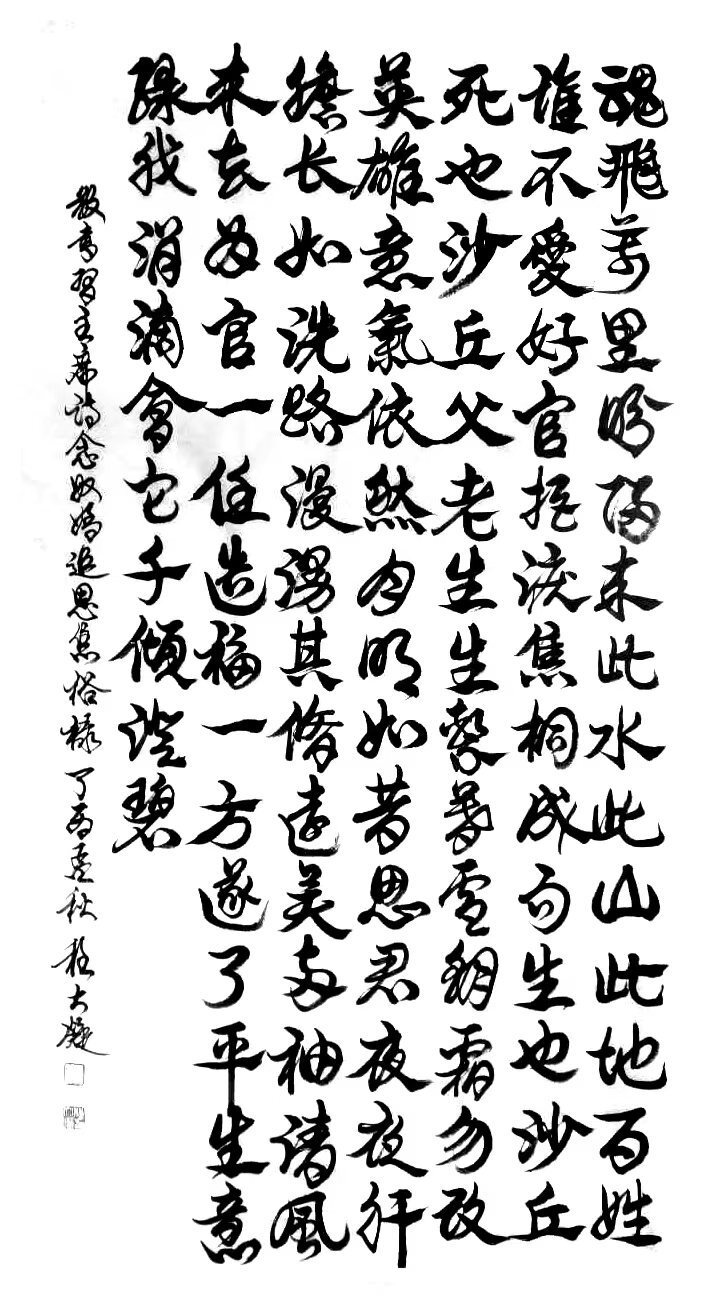 魂飛萬里盼歸来此水此山此地百姓
誰不愛好官把淚焦桐成雨生也沙丘
死也沙丘父老生生繫暮雪朝霜勿改
英雄意氣依然月明如昔思君夜夜肝
膽长如洗路漫漫其脩遠矣两袖清風
来去为官一任造福一方遂了平生意
绿我涓滴會它千傾澄碧
敬書習主席詩念奴嬌追思焦裕禄 丁酉孟秋 程大